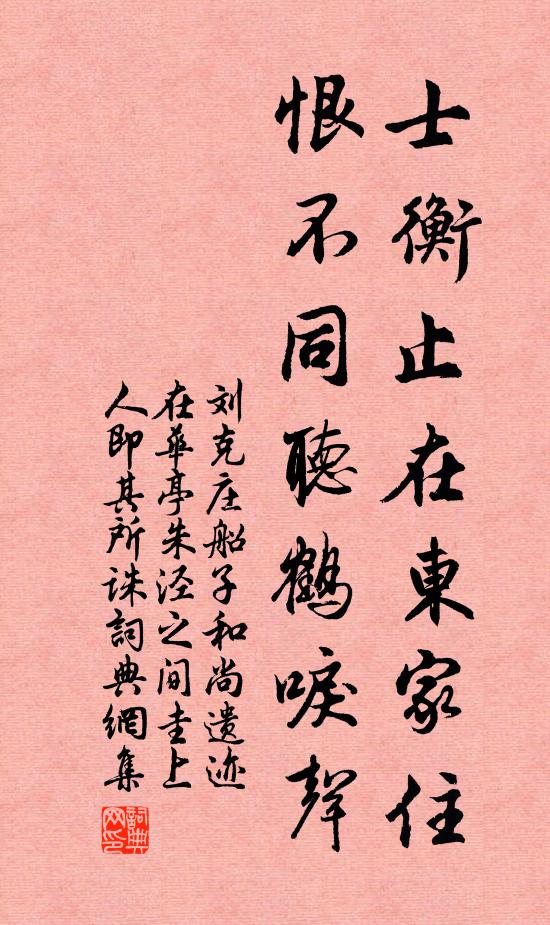 士衡止在東家住
恨不同聽鶴唳聲
刘克庄船子和尚遗迹
在華亭朱泾之间圭上
人即其所诛詞典網集
詞典
网印